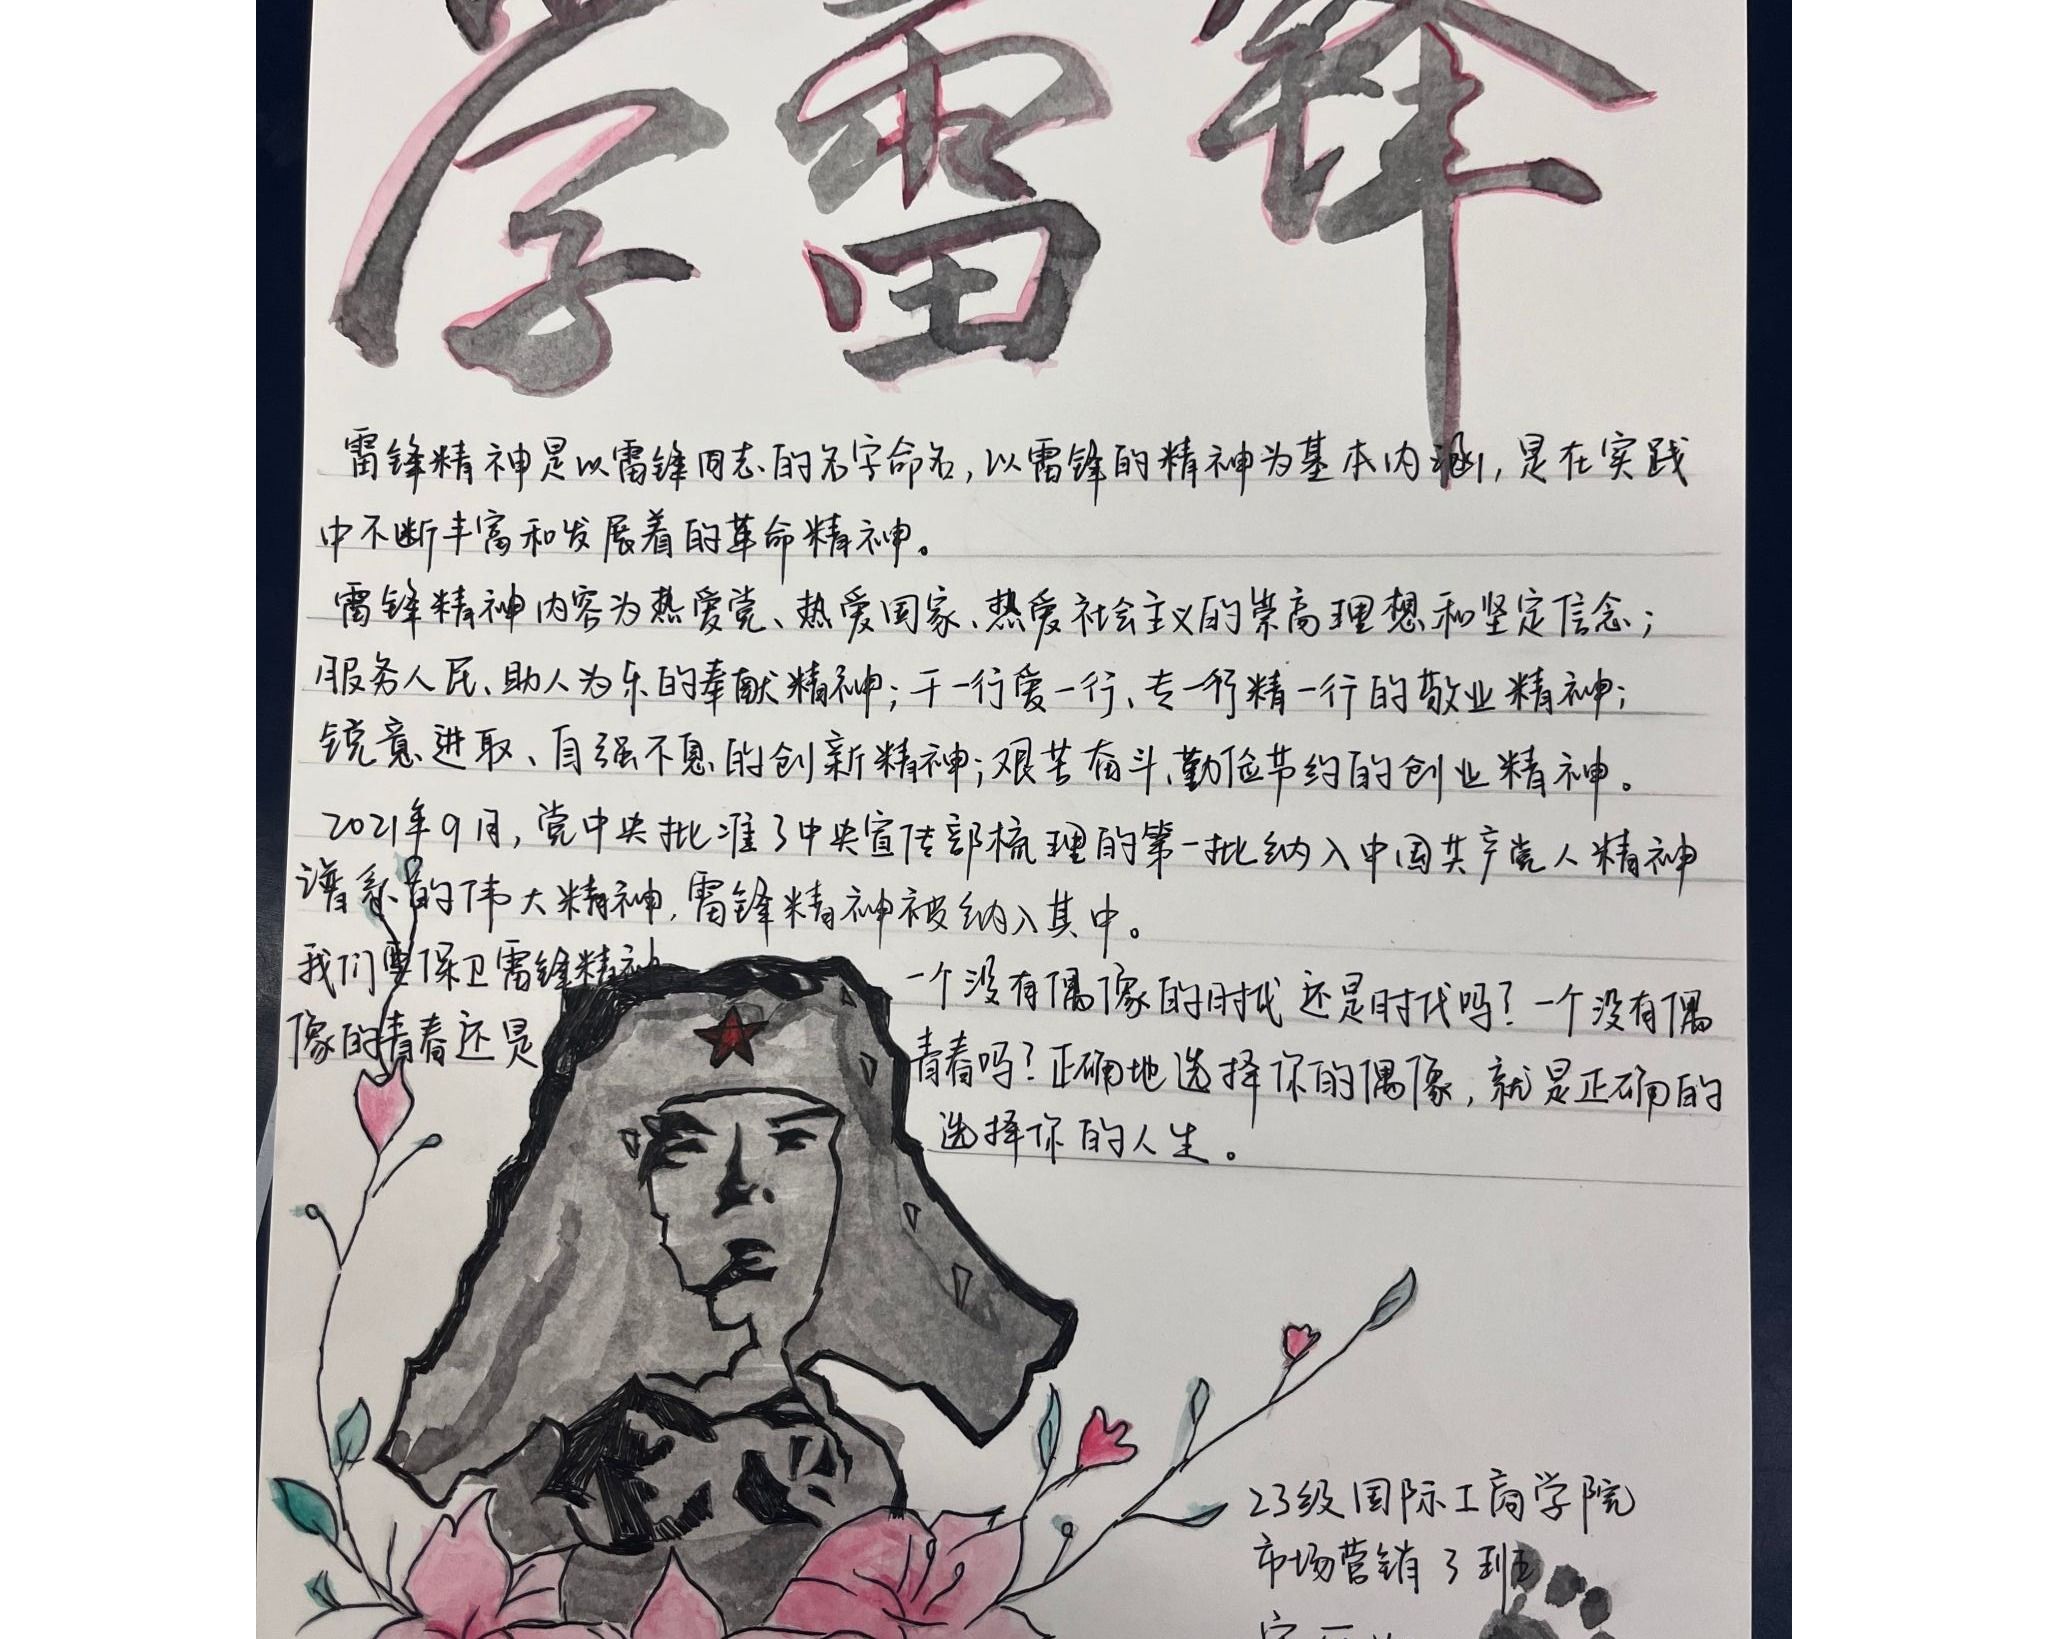 学雷锋
雷锋精神是以雷锋同志的名字命名,以雷锋的精神为基本内涵,是在实践
中不断丰富和发展着的革命精神。
雷锋精神内容为热爱党、热爱国家、热爱社会主义的崇高理想和坚定信念;
服务人民、助人为乐的奉献精神;干一行爱一行、专一行精一行的敬业精神;
锐意进取、自强不息的创新精神;艰苦奋斗、勤俭节约的创业精神。
2021年9月,党中央批准了中央宣传部梳理的第一批纳入中国共产党人精神
谱系的伟大精神,雷锋精神被纳入其中。
我们要保卫雷锋精神 一个没有偶像的时代还是时代吗?一个没有偶
像的青春还是 青春吗?正确地选择你的偶像,就是正确的
选择你的人生。
23级国际工商学院
市场营销3班